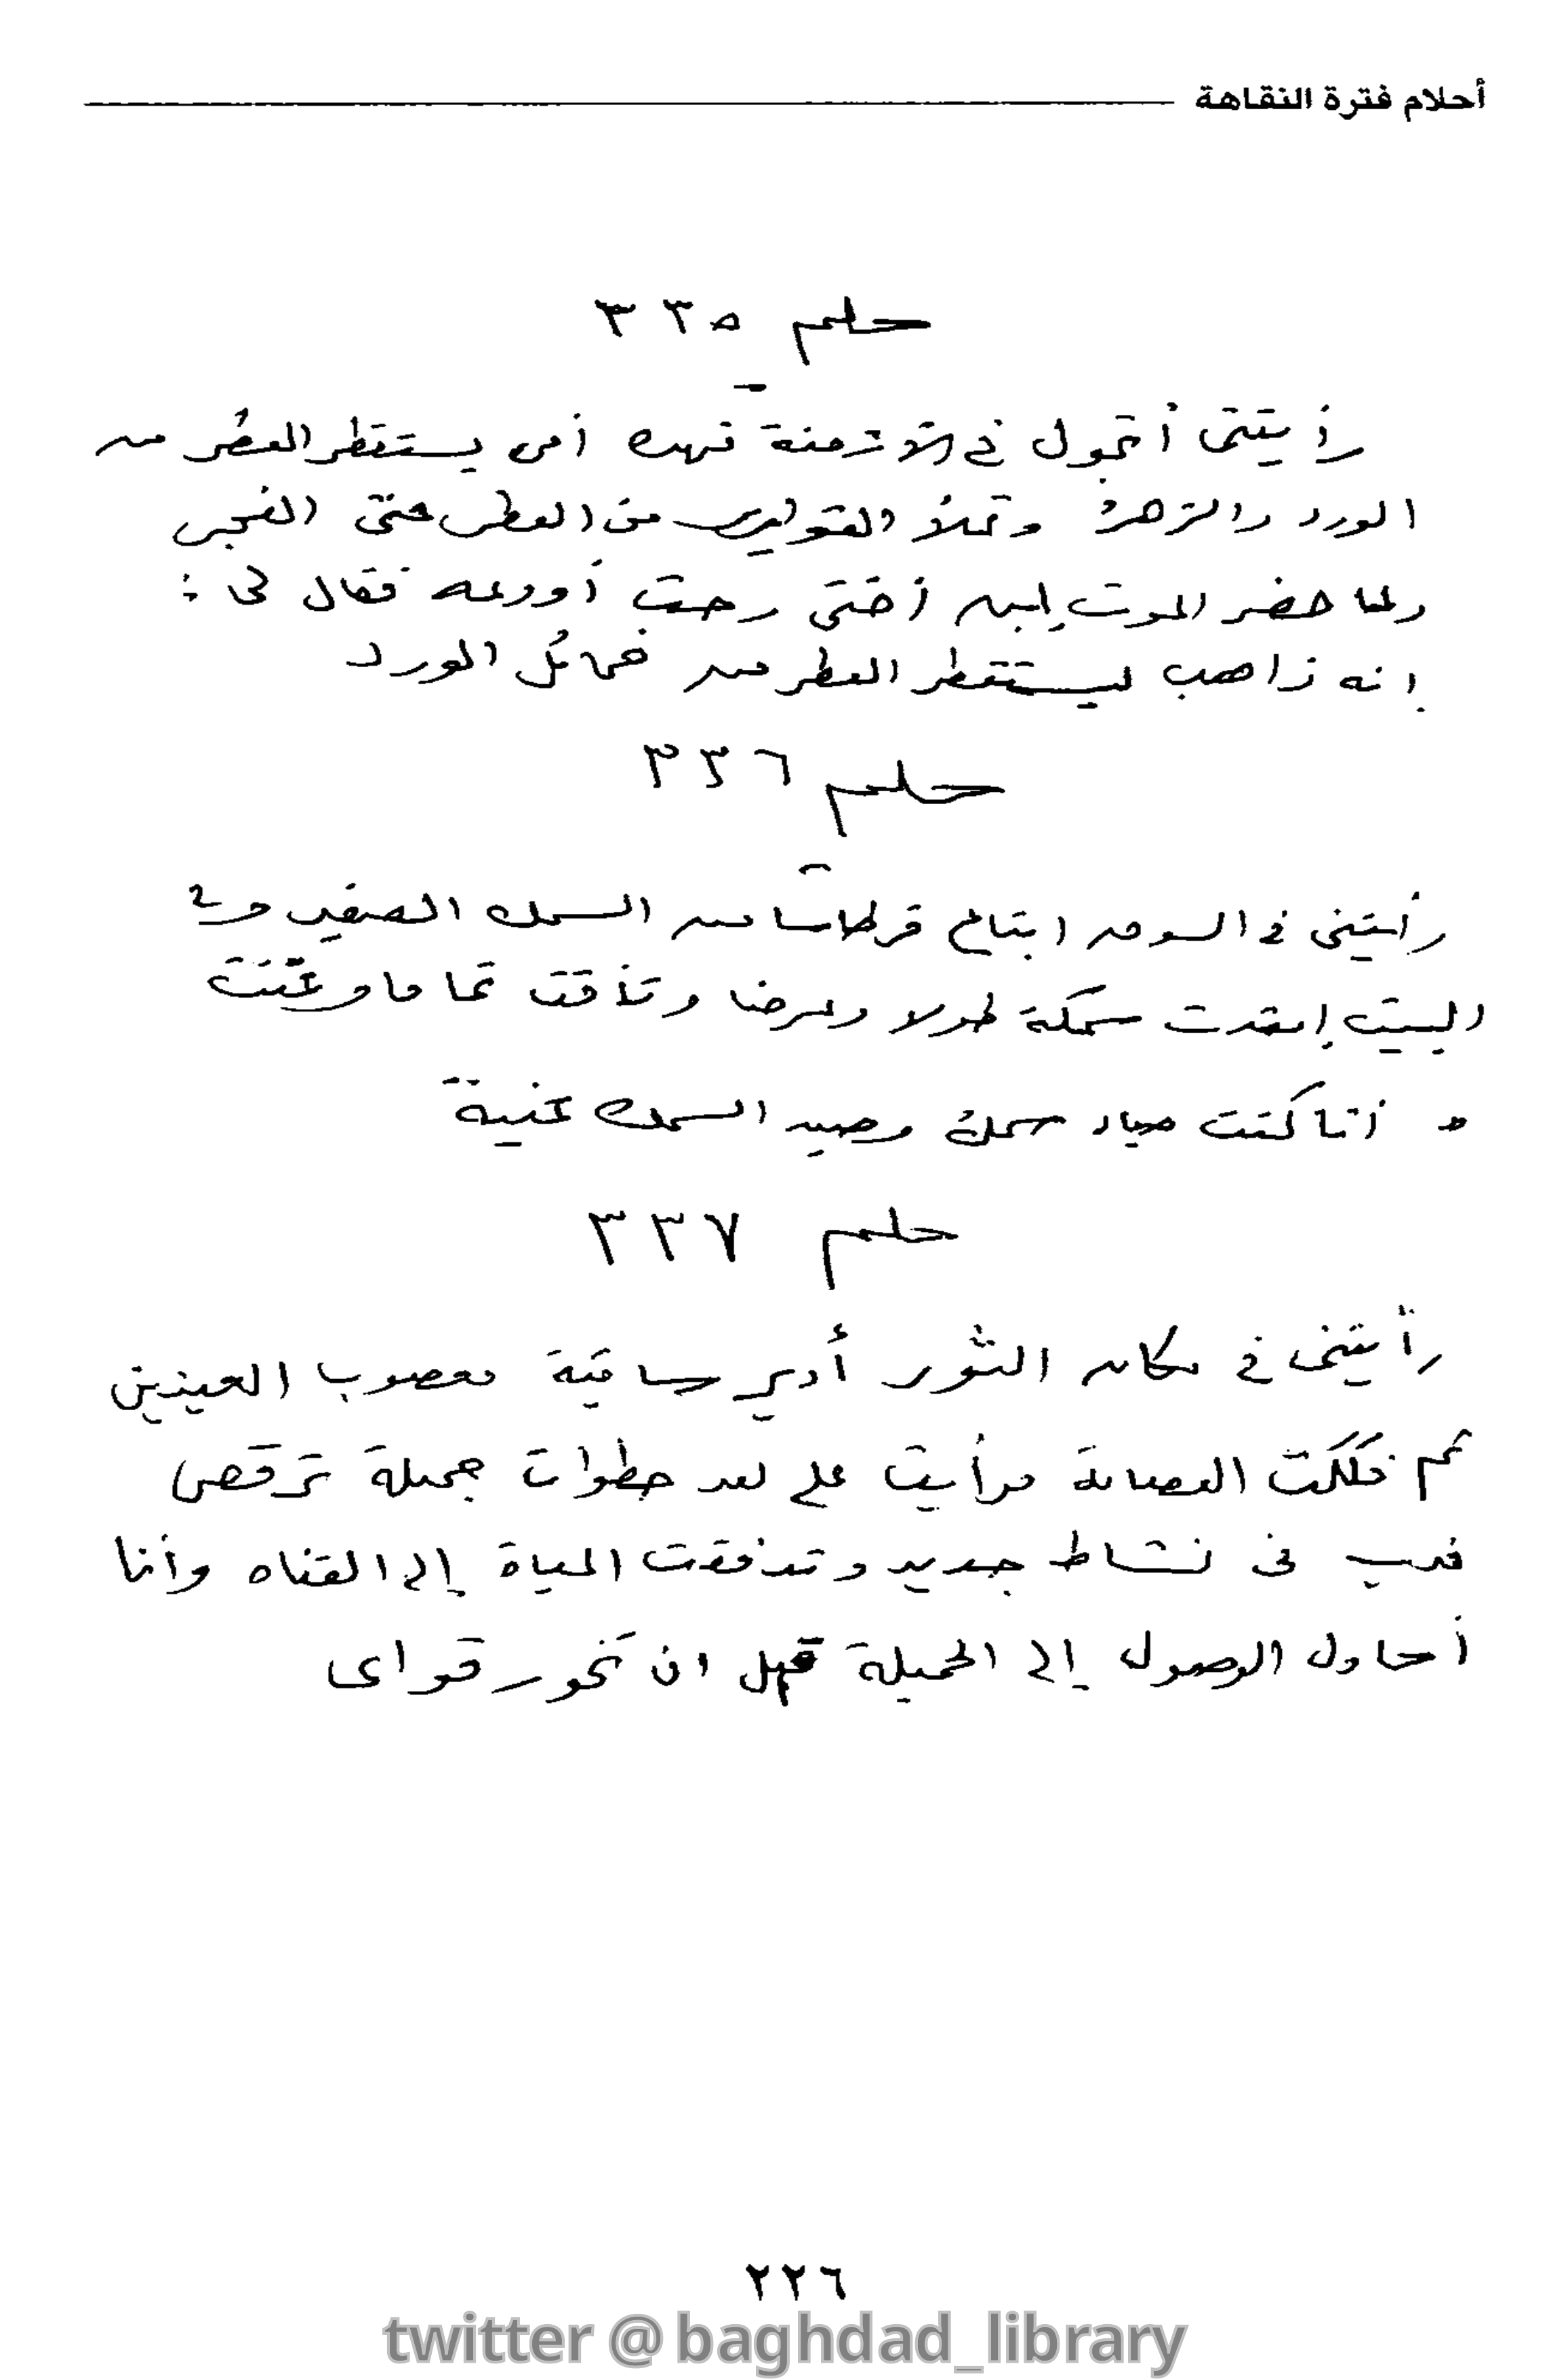 أحلام فترة النقاهة
حلم ٣٣٥
رأيتنى أتجول فى الأزمنة فهذه أمى يستقطر العطر من
الورد والزهر وتملأ القوارير من العطر حتى الفجر
ولما حضر الموت إبن أختى رحت أودعه فقال لى :
إنه ذاهب ليستقطر العطر من خمائل الورد
حلم ٣٣٦
رأيتنى فى السوق ابتاع قرطاسا من السمك الصغير وفى
البيت سمكة طولا وعرضا تماما وغنت
أنا كنت صياد سمك وصيد السمك غية
حلم ٣٣٧
رأيتنى فى مكان الثور أدير ساقية معصوب العينين
ثم فككت العصابة فرأيت على بعد خطوات جميلة ترقص
فدب فى نشاط جديد وتدفقت المياة إلى القناه وأنا
أحاول الوصول إلى الجميلة قبل ان تخور قواى
٢٢٦
twitter @baghdad_library